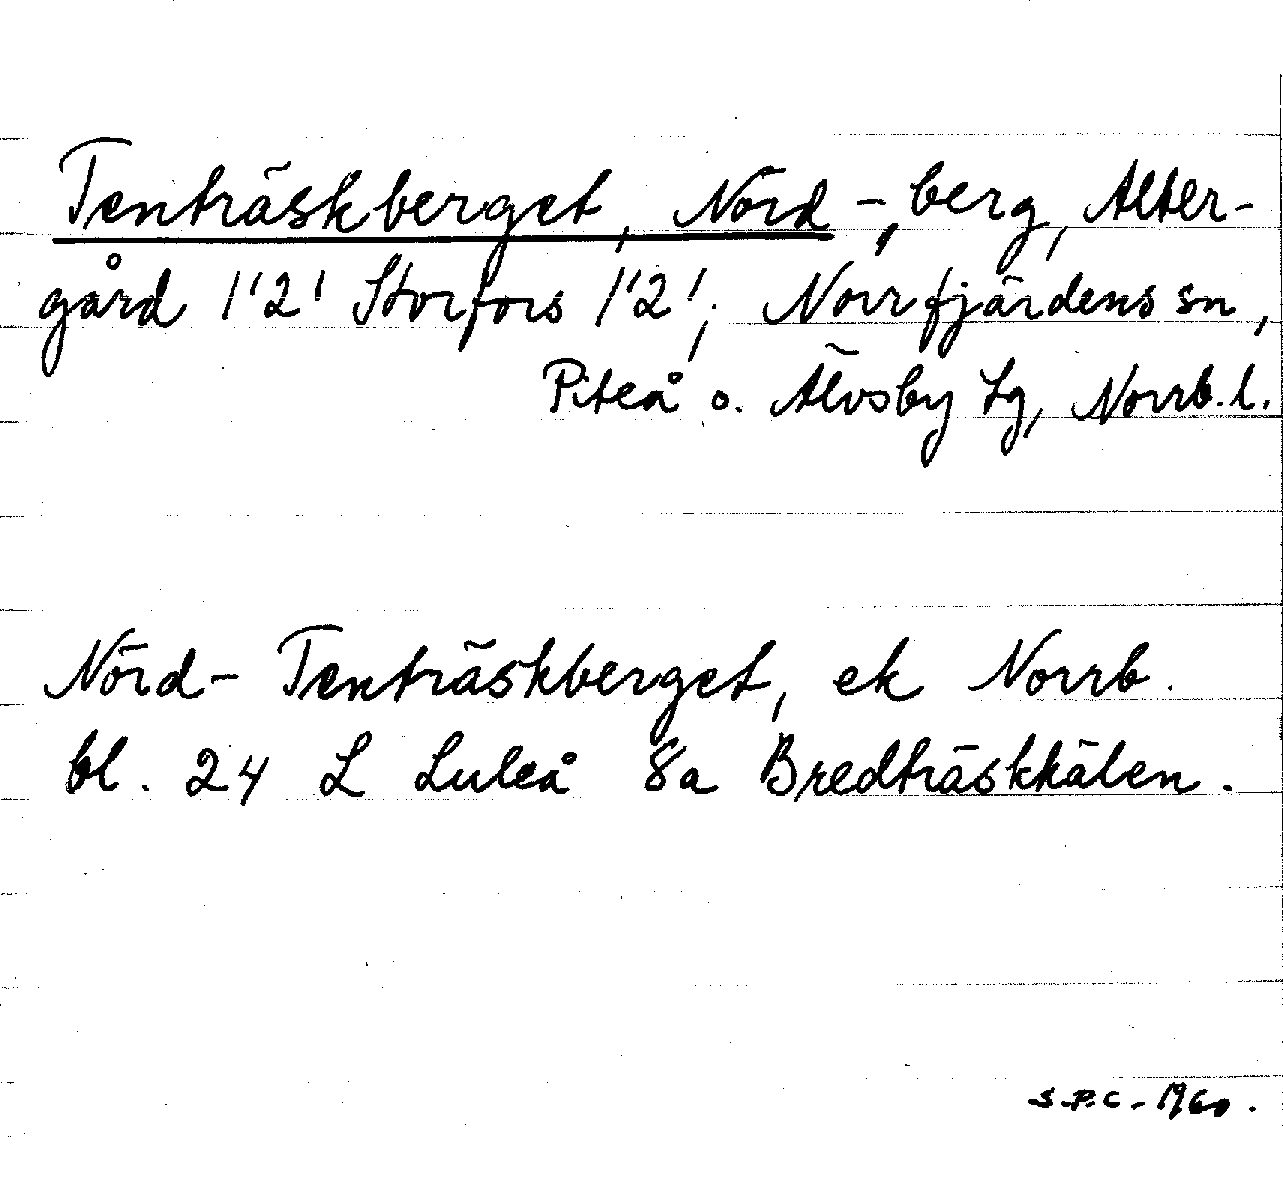 Tenträskberget, Nörd -, berg, Alter-
gård 1'2' Storfors 1'2'; Norrfjärdens sn,
Piteå o. Älvsby tg, Norrb. l.
Nörd- Tenträskberget, ek Norrb.
bl. 24 L Luleå 8a Bredträskkälen.
S.P.C. - 1960.